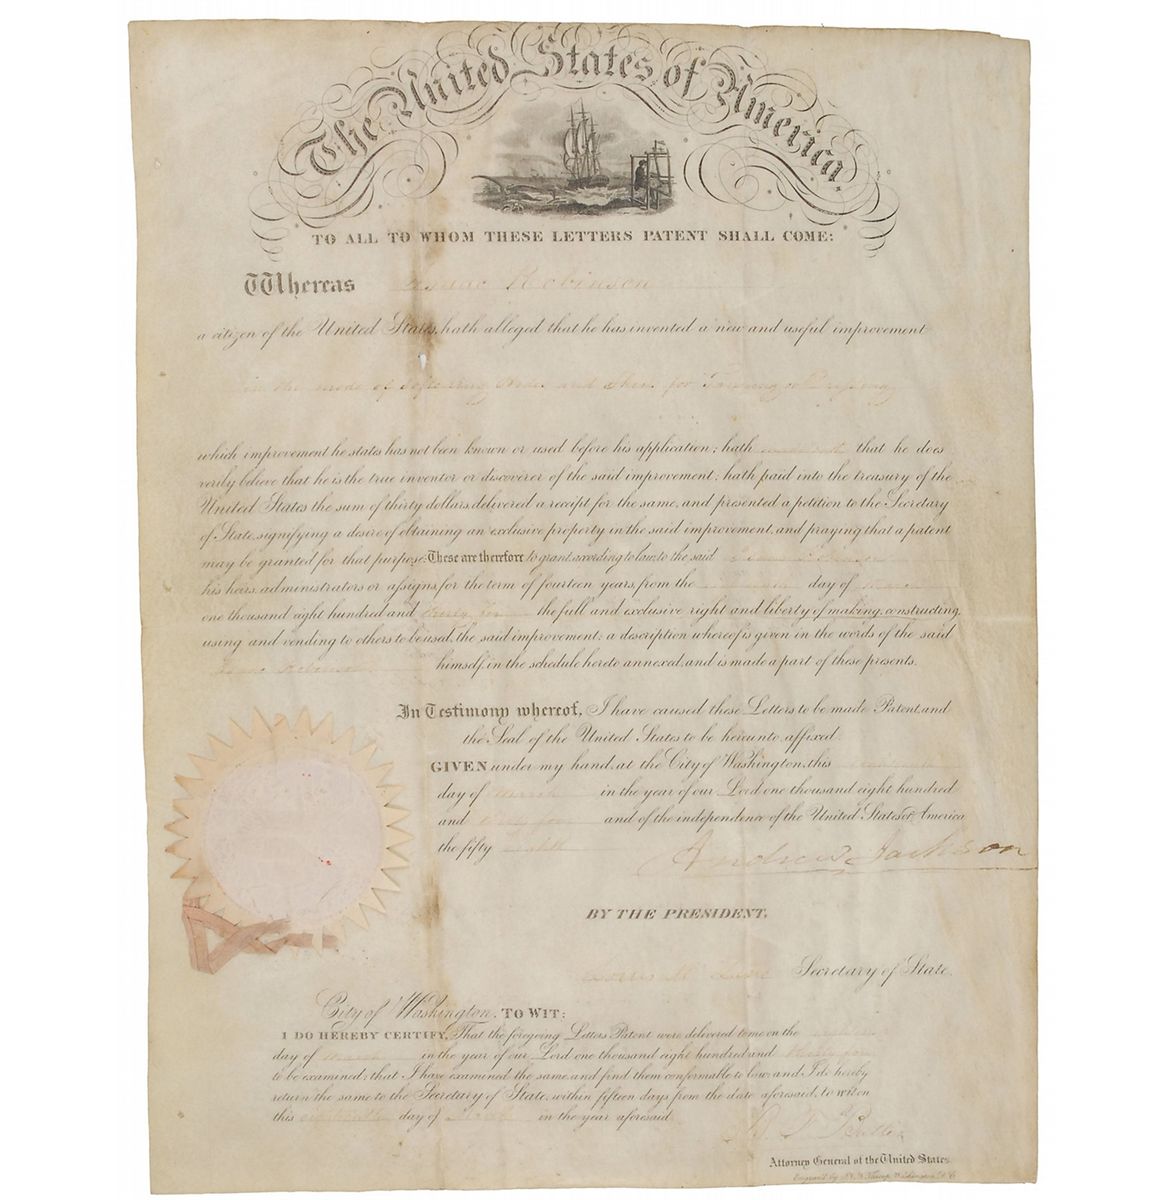 The United States of America,
TO ALL TO WHOM THESE LETTERS PATENT SHALL COME:
Whereas Isaac Robinson
a citizen of the United States, hath alleged that he has invented a new and useful improvement
in the mode of Softening Hides and Skins for Tanning or
which improvement he states has not been known or used before his application; hath that he does
verily believe that he is the true inventor or discoverer of the said improvement; hath paid into the treasury of the
United States the sum of thirty dollars, delivered a receipt for the same, and presented a petition to the Secretary
of State, signifying a desire of obtaining an exclusive property in the said improvement, and praying that a patent
may be granted for that purpose: These are therefore to grant, according to law, to the said Isaac Robinson
his heirs, administrators or assigns, for the term of fourteen years, from the day of
one thousand eight hundred and thirty four the full and exclusive right and liberty of making, constructing,
using and vending to others to be used, the said improvement; a description whereof is given in the words of the said
Isaac Robinson himself, in the schedule hereto annexed, and is made a part of these presents.
In Testimony whereof, I have caused these Letters to be made Patent, and
the Seal of the United States to be hereunto affixed.
GIVEN under my hand, at the City of Washington, this
day of March in the year of our Lord one thousand eight hundred
and thirty four and of the independence of the United States of America
the fifty eighth
Andrew Jackson
BY THE PRESIDENT.
Louis M Lane Secretary of State.
City of Washington, TO WIT:
I DO HEREBY CERTIFY, That the foregoing Letters Patent were delivered to me on the
day of March in the year of our Lord one thousand eight hundred and thirty four
to be examined; that I have examined the same, and find them conformable to law; and I do hereby
return the same to the Secretary of State, within fifteen days from the date aforesaid, to wit: on
this eighteenth day of March in the year aforesaid.
B. F. Butler
Attorney General of the United States.